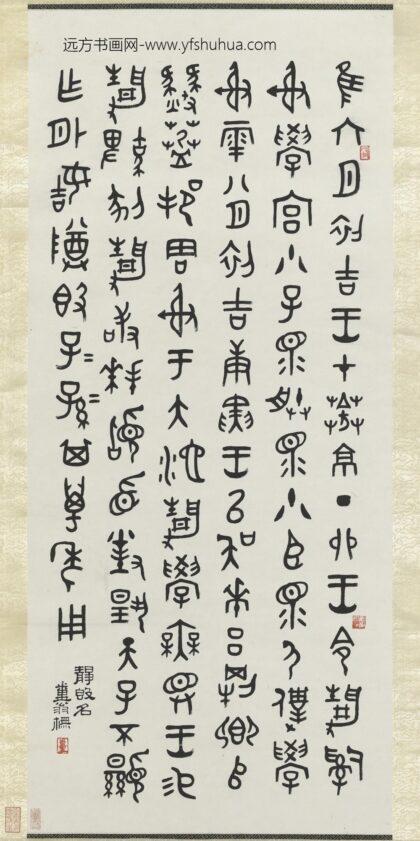 远方书画网-www.yfshuhua.com
隹六月初吉王才葊京丁卯王令靜𤔲
射學宮小子眔服眔小臣眔尸僕學
射雩八月初吉庚寅王以吳𠦪呂剛卿
邦周射于大池靜學無斁王易
靜鞞剶靜敢拜𩒨首對揚天子不顯
乍外姞尊𣪘子=孫=其萬年用
靜𣪘名